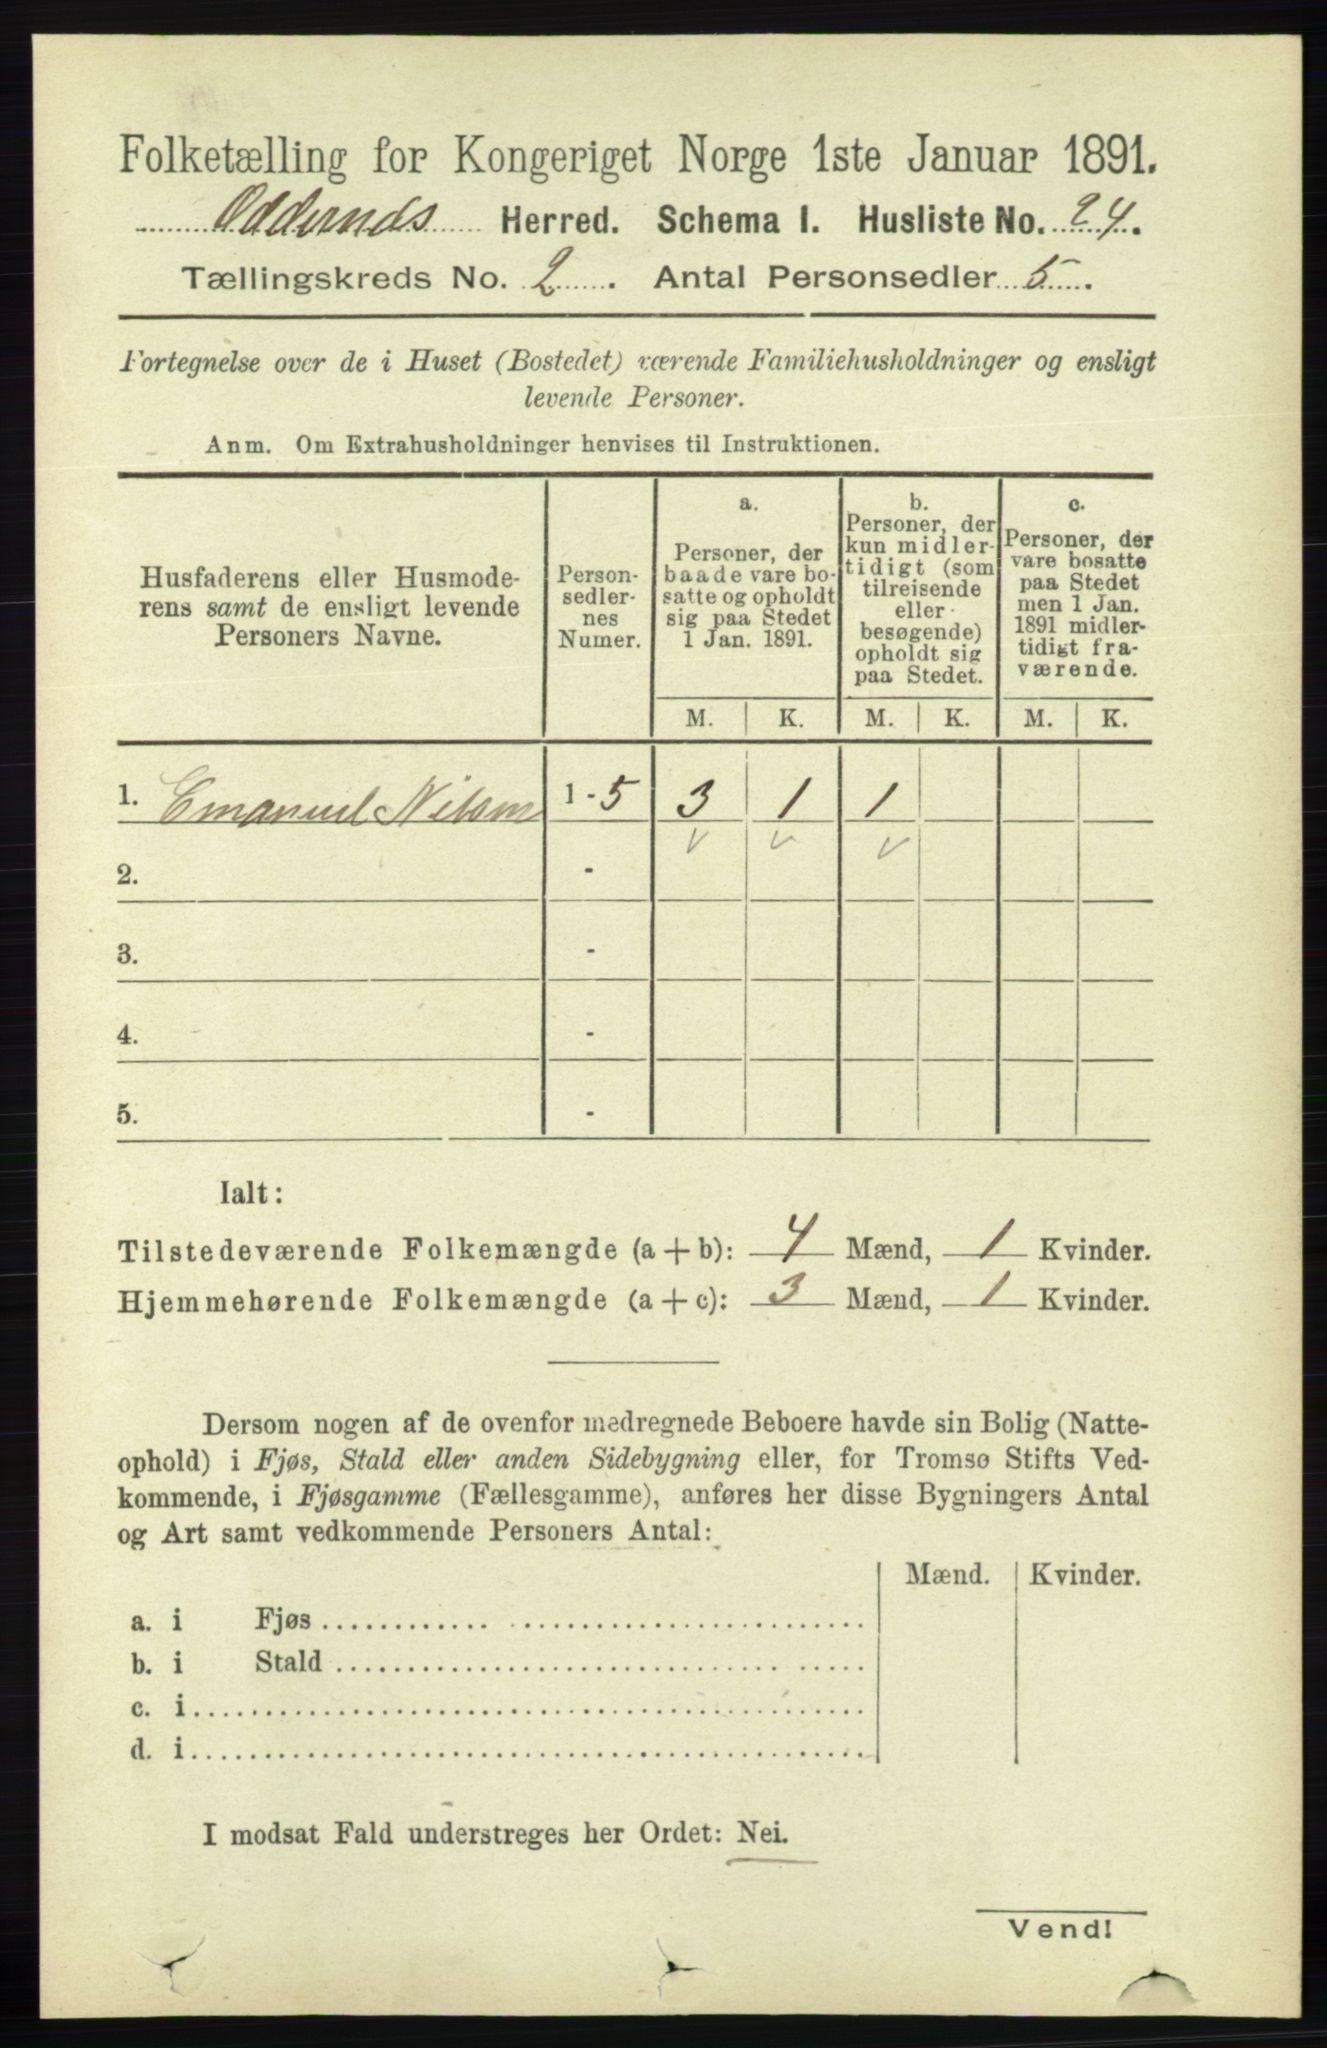 Folketælling for Kongeriget Norge 1ste Januar 1891.
Oddernds Herred. Schema I. Husliste No. 24.
Tællingskreds No. 2. Antal Personsedler 5.
Fortegnelse over de i Huset (Bostedet) værende Familiehusholdninger og ensligt
levende Personer.
Anm. Om Extrahusholdninger henvises til Instruktionen.
Husfaderens eller Husmode-
rens samt de ensligt levende
Personers Navne.
Person-
sedler-
nes
Numer.
a.
Personer, der
baade vare bo-
satte og opholdt
sig paa Stedet
1 Jan. 1891.
b.
Personer, der
kun midler-
tidigt (som
tilreisende
eller
besøgende)
opholdt sig
paa Stedet.
c.
Personer, der
vare bosatte
paa Stedet
men 1 Jan.
1891 midler-
tidigt fra-
værende.
M. K. M. K. M. K.
1. Emanuel Nilsen 1 - 5 3 1 1
2. -
3. -
4. -
5. -
Ialt:
Tilstedeværende Folkemængde (a + b): 4 Mænd, 1 Kvinder.
Hjemmehørende Folkemængde (a + c): 3 Mænd, 1 Kvinder.
Dersom nogen af de ovenfor medregnede Beboere havde sin Bolig (Natte-
ophold) i Fjøs, Stald eller anden Sidebygning eller, for Tromsø Stifts Ved-
kommende, i Fjøsgamme (Fællesgamme), anføres her disse Bygningers Antal
og Art samt vedkommende Personers Antal:
Mænd. Kvinder.
a. i Fjøs
b. i Stald
c. i
d. i
I modsat Fald understreges her Ordet: Nei.
Vend!